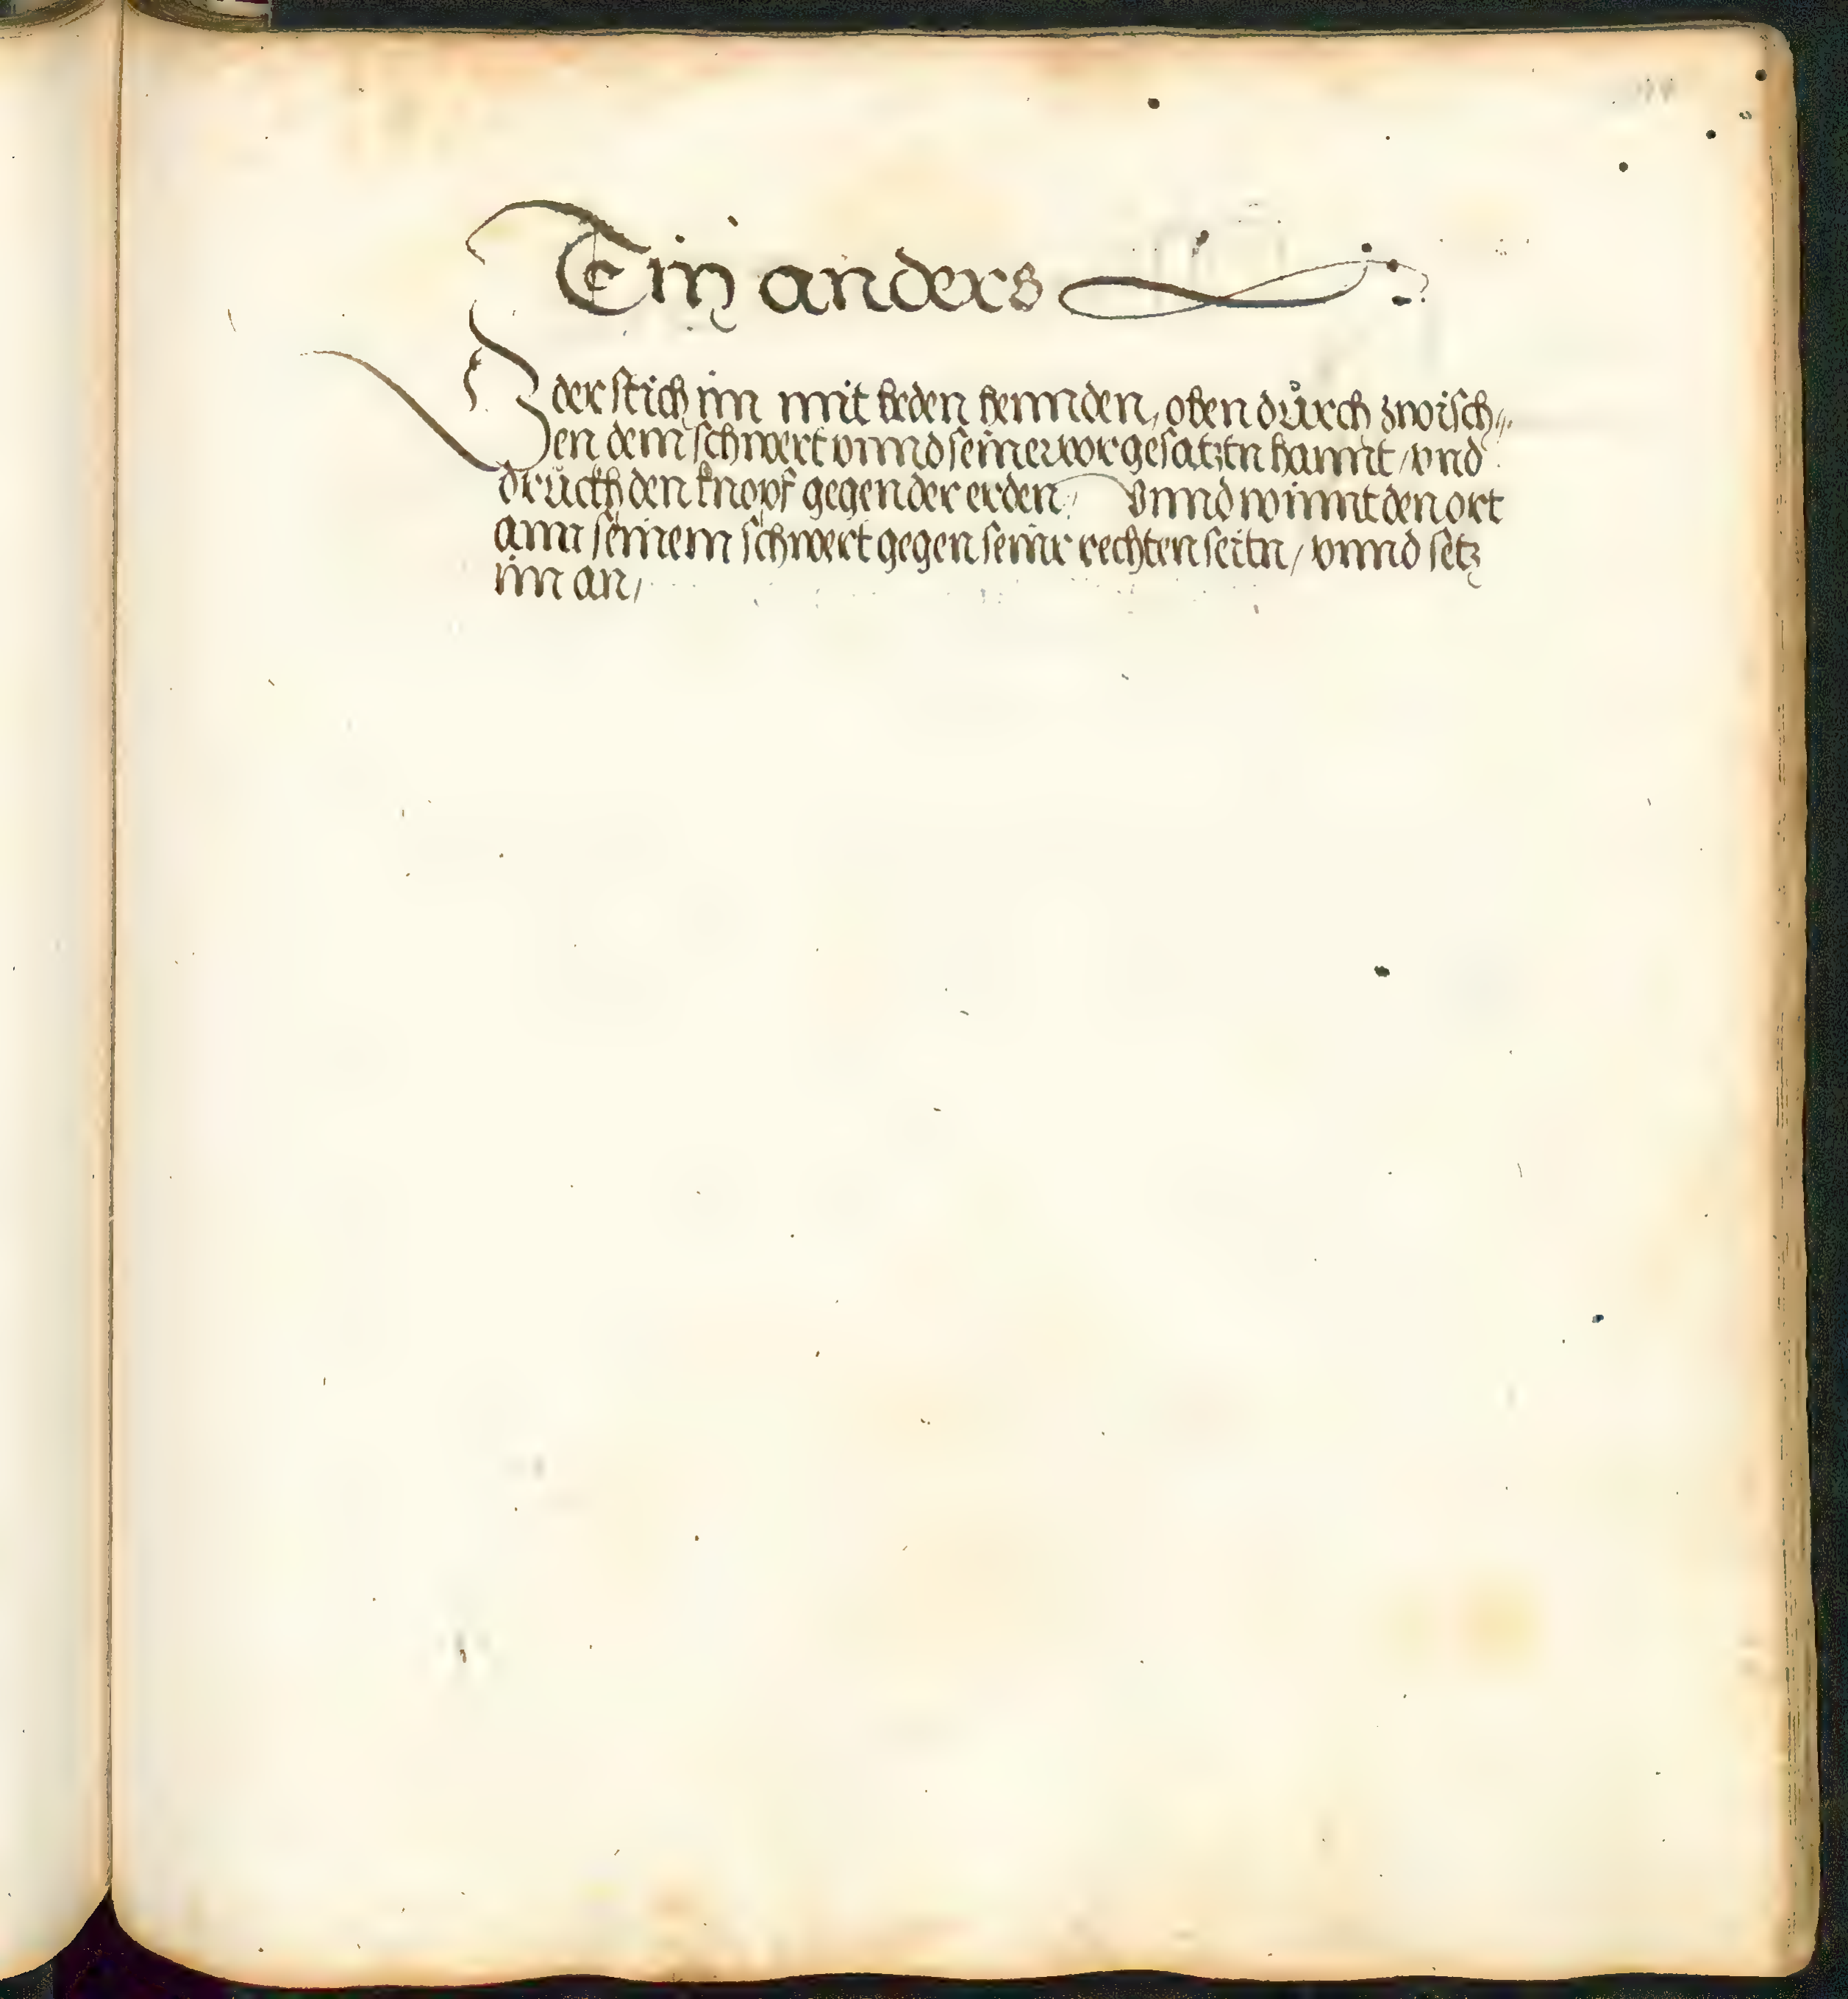 Ein anders
Oder stich im mit beden hennden, oben důrch zwisch„
en dem schwert vnnd seiner vorgesatztn hannt / vnd
drůckh den knopf gegen der erden / Vnnd winnt den ort
ann seinem schwert gegen seinr rechten seitn / vnnd setz
im an /